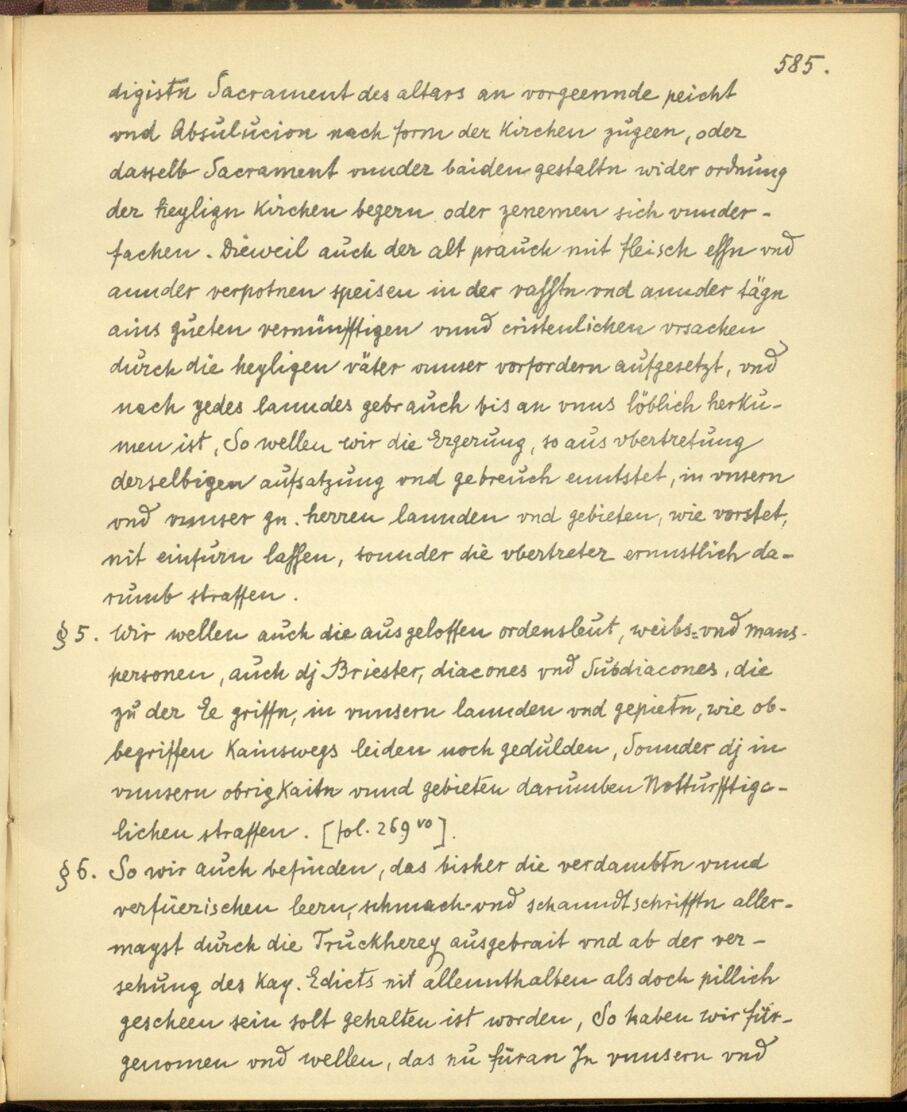 585.
digistn Sacrament des altars an vorgeennde peicht
vnd Absulucion nach form der Kirchen zugeen, oder
dasselb Sacrament vnnder baiden gestaltn wider ordnung
der heylign Kirchen begern oder zenemen sich vnnder-
fachen. Dieweil auch der alt prauch mit fleisch essn vnd
annder verpotnen speisen in der vasstn vnd annder tägn
ains gueten vernünfftigen vnnd cristenlichen vrsachen
durch die heyligen väter vnnser vorfordern aufgesetzt, vnd
nach yedes lanndes gebrauch bis an vnns löblich herku-
men ist, So wellen wir die Ergerung, so aus vbertretung
derselbigen aufsatzung vnd gebreuch enntstet, in vnsern
vnd vnnser gn. herren lannden vnd gebieten, wie vorstet,
nit einfurn lassen, sonnder die vbertreter ernnstlich da-
rumb straffen.
§ 5. Wir wellen auch die ausgeloffen ordensleut, weibs= vnd mans-
personen, auch dj Briester, diacones vnd Subdiacones, die
zu der Ee griffn, in vnnsern lannden vnd gepietn, wie ob-
begriffen Kainswegs leiden noch gedulden, Sonnder dj in
vnnsern obrigkaitn vnnd gebieten darumben Notturfftigc-
lichen straffen. [fol. 269 vo].
§ 6. So wir auch befinden, das bisher die verdambtn vnnd
verfüerischen leern, schmach- vnd schanndtschrifftn aller-
mayst durch die Truckherey ausgebrait vnd ab der ver-
sehung des Kay. Edicts nit allennthalben als doch pillich
gescheen sein solt gehalten ist worden, So haben wir für-
genomen vnd wellen, das nu füran In vnnsern vnd